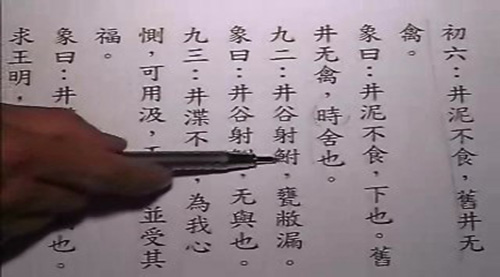 初六：井泥不食，舊井无
禽。
象曰：井泥不食，下也。舊
井无禽，時舍也。
九二：井谷射鮒，甕敝漏。
象曰：井谷射，无與也。
九三：井渫不，為我心
惻，可用汲，並受其
福。
象曰：井也。
求王明，